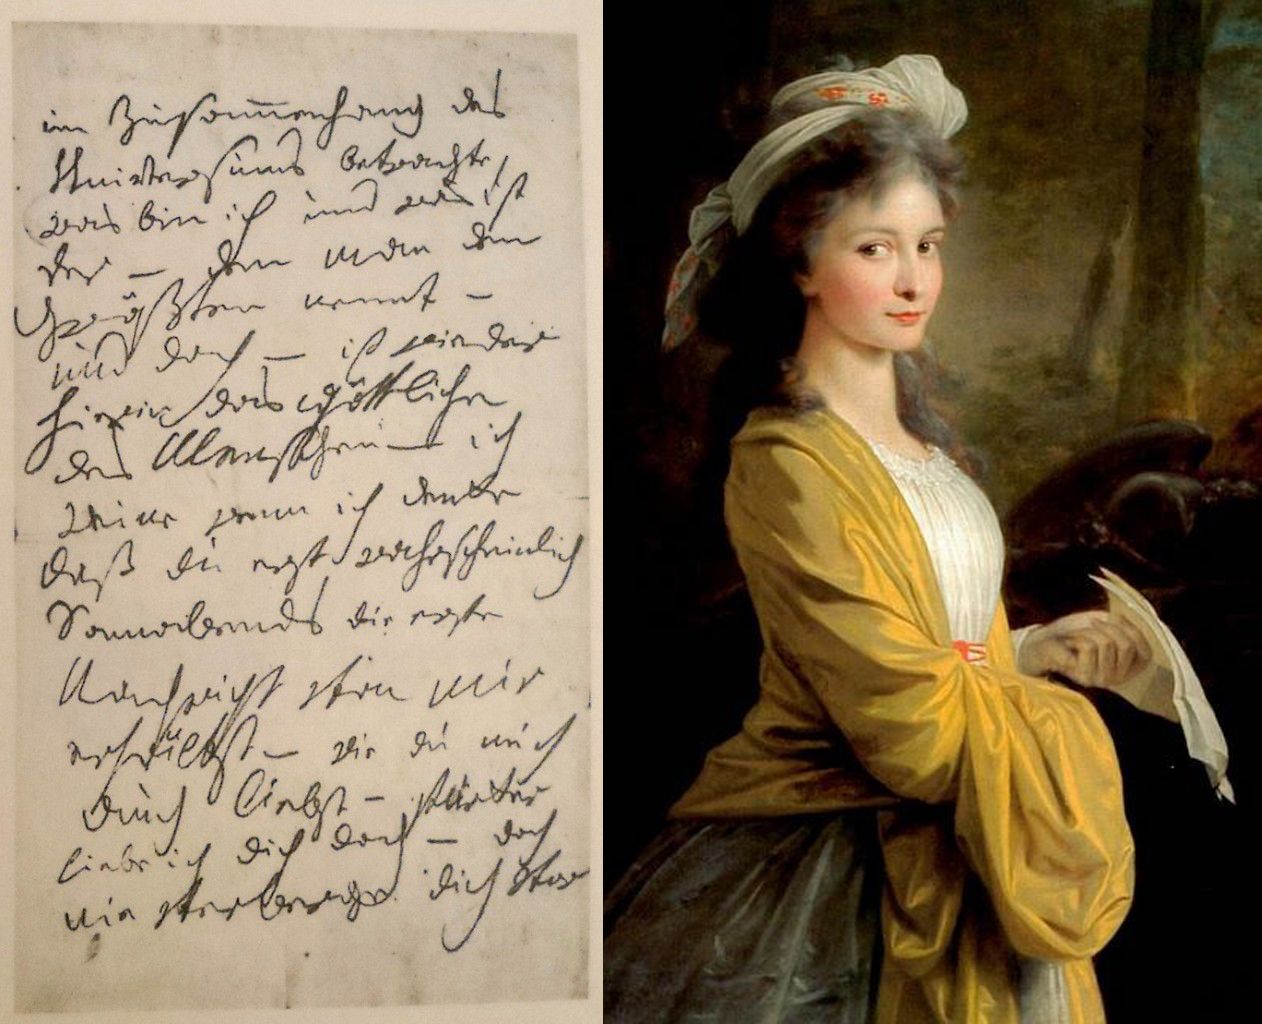 im Zusam̅enhang des
Universums betrachte,
was bin ich und was ist
der — den man den
Größten nennt —
und doch — ist wieder
hierin das Göttliche
des Menschen — ich
weine wenn ich denke
daß du erst wahrscheinlich
Sonnabends die erste
Nachricht von mir
erhältst — wie du mich
auch liebst — stärker
liebe ich dich doch — doch
nie verberge dich vor